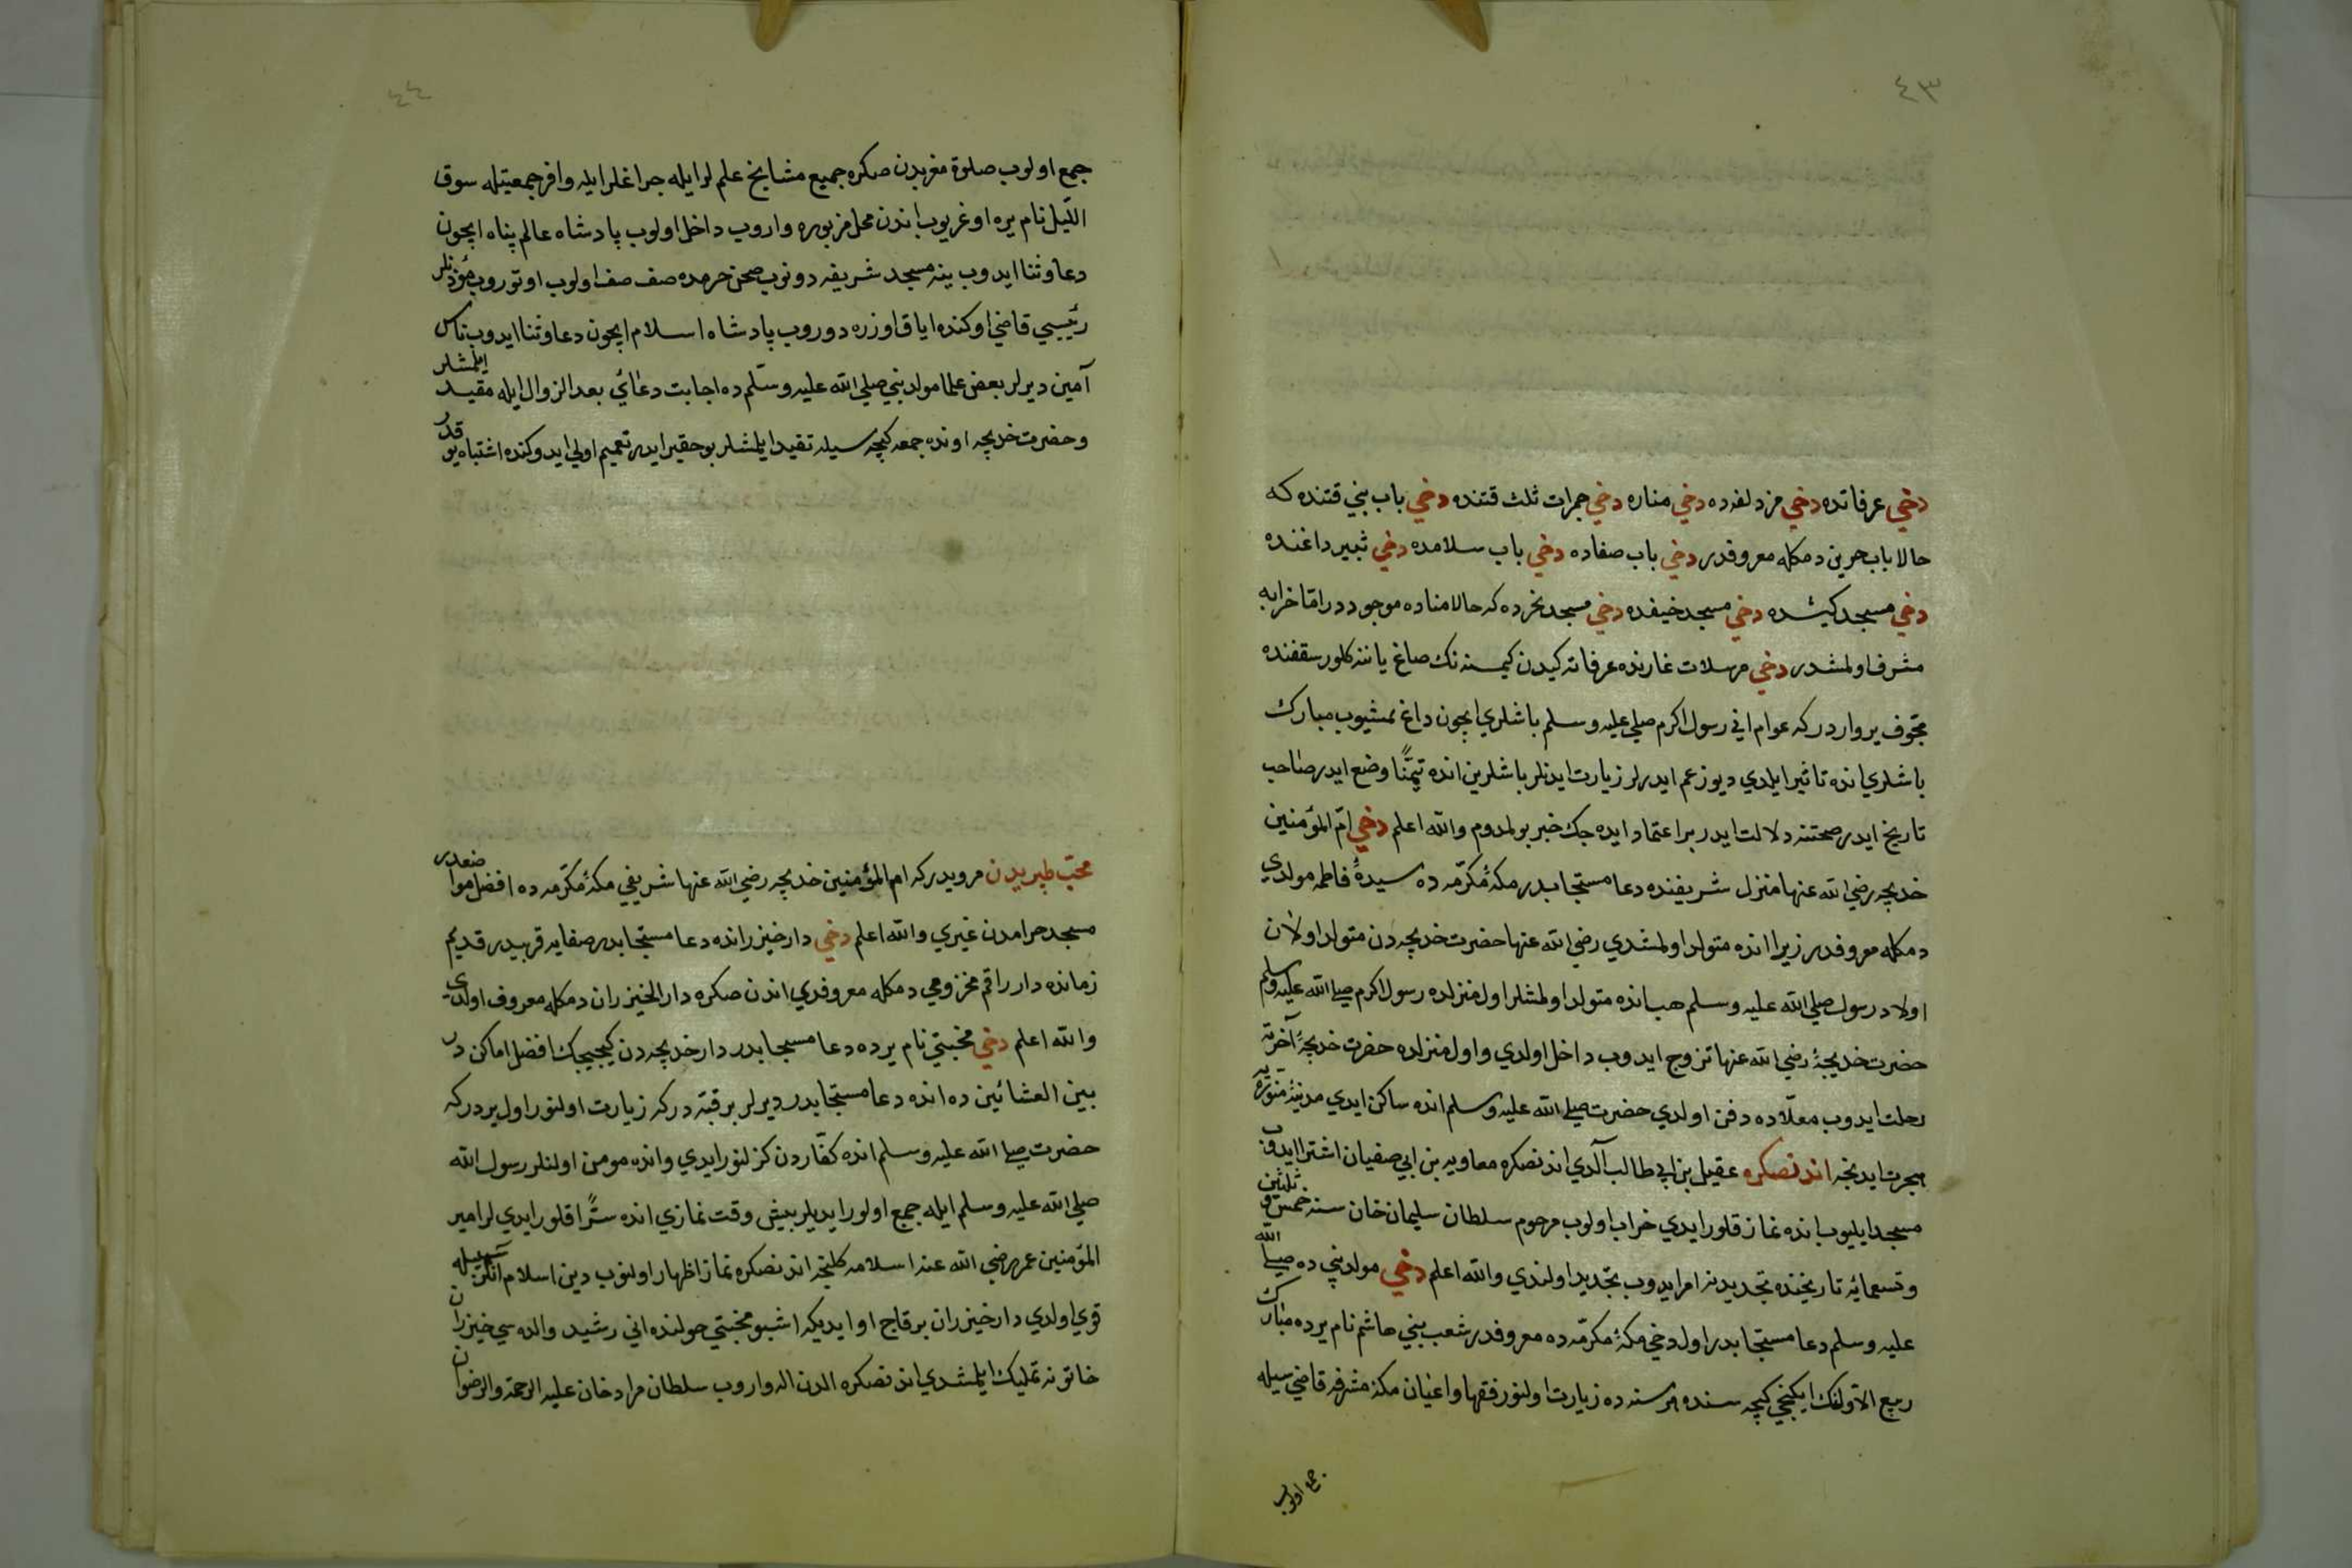 ٤٣
دخي عرفاتده دخي مزدلفه ده دخي مناره دخي جمرات ثلث قتنده دخي باب بني قتنده كه
حالا باب حرين دمكله معروفدر دخي باب صفاده دخي باب سلامده دخي ثبير داغنده
دخي مسجد كبشده دخي مسجد خيفده دخي مسجد نحرده كه حالا مناده موجوددر اما خرابه
مشرف اولمشدر دخي مرسلات غارنده عرفاته كيدن كيمسنه نك صاغ ياننه كلور سقفنده
مجوّف ير واردركه عوام اني رسول اكرم صلي عليه وسلم باشلري ايچون داغ يمشيوب مبارك
باشلري انده تاثير ايلدي ديو زعم ايدرلر زيارت ايدنلر باشلرين انده تيمّنًا وضع ايدر صاحب
تاريخ ايدر صحتنه دلالت ايدر بر اعتماد ايده جك خبر بولمدوم والله اعلم دخي امّ المؤمنين
خديجه رضي الله عنها منزل شريفنده دعا مستجابدر مكۀ مكرّمه ده سيدۀ فاطمه مولدي
دمكله معروفدر زيرا انده متولد اولمشدي رضي الله عنها حضرت خديجه دن متولد اولان
اولاد رسول صلي الله عليه وسلم هب انده متولد اولمشلر اول منزلده رسول اكرم صلي الله عليه وسلم
حضرت خديجۀ رضي الله عنها تزوج ايدوب داخل اولدي واول منزلده حضرت خديجۀ آخرته
رحلت ايدوب معلّاده دفن اولدي حضرت صلي الله عليه وسلم انده ساكن ايدي مدينۀ منوّره يه
هجرت ايدنجه اندنصكره عقيل بن ابي طالب آلدي اندنصكره معاويه بن ابي صفيان اشترا ايدوب
مسجد ايليوب انده نماز قلور ايدي خراب اولوب مرحوم سلطان سليمان خان سنه خمس وثلثين
وتسعمائه تاريخنده تجديدنه امر ايدوب تجديد اولندي والله اعلم دخي مولد نبي ده صلي الله
عليه وسلم دعا مستجابدر اول دخي مكۀ مكرّمه ده معروفدر شعب بني هاشم نام يرده مبارك
ربيع الاولنك ايكنجي كيجه سنده هر سنه ده زيارت اولنور فقها واعيان مكۀ مشرفه قاضي سيله
جمع اولوب
٤٤
جمع اولوب صلوة مغربدن صكره جميع مشايخ علم لر ايله جراغلر ايله وافر جمعيتله سوق
اللّيل نام يره اوغريوب اندن محل مزبوره واروب داخل اولوب پادشاه عالم پناه ايچون
دعا وثنا ايدوب ينه مسجد شريفه دونوب صحن حرمده صف صف اولوب اوتوروب مؤذنلر
رئيسي قاضي اوكنده اياق اوزره دوروب پادشاه اسلام ايچون دعا وثنا ايدوب ناس
آمين ديرلر بعض علما مولد نبي صلي الله عليه وسلّم ده اجابت دعائي بعد الزوال ايله مقيد ايلمشلر
وحضرت خديجه اونده جمعه كيجه سيله تقيد ايلمشلر بو حقير ايدر تعميم اولي ايدوكنده اشتباه يوقدر
محبّ طبريدن مرويدركه ام المؤمنين خديجه رضي الله عنها شريفي مكۀ مكرّمه ده افضل مواضعدر
مسجد حرامدن غيري والله اعلم دخي دار خيزرانده دعا مستجابدر صفايه قريبدر قديم
زمانده دار راقم مخزومي دمكله معروفدي اندن صكره دار الخيزران دمكله معروف اولدي
والله اعلم دخي مختبي نام يرده دعا مستجابدر دار خديجه دن كيجيجك افضل اماكن در
بين العشائين ده انده دعا مستجابدر ديرلر بر قبّه دركه زيارت اولنور اول يردركه
حضرت صلي الله عليه وسلم انده كفّاردن كزلنور ايدي وانده مومن اولنلر رسول الله
صلي الله عليه وسلم ايله جمع اولور ايديلر بيش وقت نمازي انده سرًّا قلور ايدي لر امير
المؤمنين عمر رضي الله عنه اسلامه كلنجه اندنصكره نماز اظهار اولنوب دين اسلام آنكن سيله
قوي اولدي دار خيزران بر قاچ او ايديكه اشبو مختبي حولنده اني رشيد والده سي خيزران
خاتونه تمليك ايلمشدي اندنصكره الدن اله واروب سلطان مراد خان عليه الرحمة والرضوان